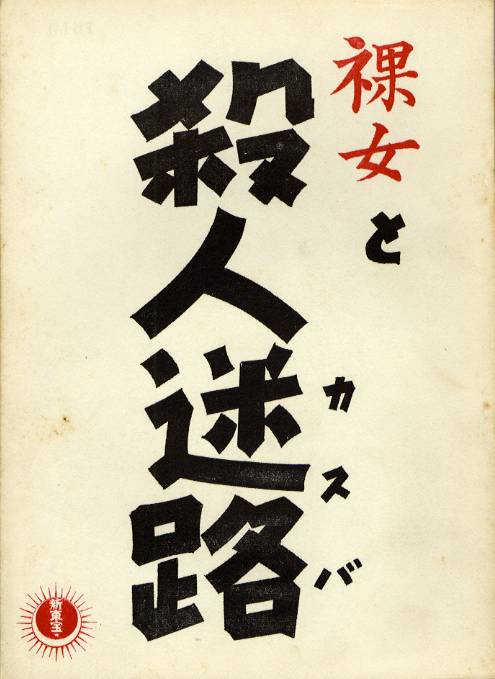 裸女と
殺人迷路
カスバ
新東宝